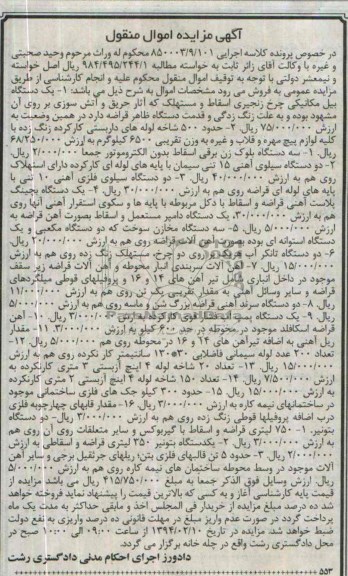 آگهی مزایده اموال منقول
در خصوص پرونده کلاسه اجرایی ۸۵۰۰۰۳/۹/۱۰۱ محکوم له وراث مرحوم وحید صحبتی
و غیره با وکالت آقای زائر ثابت به خواسته مطالبه ۹۸۴/۴۹۵/۲۴۴/۱ ریال اصل خواسته
و نیمعشر دولتی با توجه به توقیف اموال منقول محکوم علیه و انجام کارشناسی از طریق
مزایده عمومی به فروش می رود مشخصات اموال به شرح ذیل می باشد: ۱- یک دستگاه
بیل مکانیکی چرخ زنجیری اسقاط و مستهلک که آثار حریق و آتش سوزی بر روی آن
مشهود بوده و به علت زنگ زدگی و قدمت دستگاه ظاهر قراضه دارد در همین وضعیت به
ارزش ۷۵/۰۰۰/۰۰۰ ریال. ۲- حدود ۵۰۰ شاخه لوله های داربستی کارکرده زنگ زده با
کلیه لوازم پیچ مهره و قلاب و غیره به وزن تقریبی ۶۵۰۰ کیلوگرم به ارزش ۶۸/۲۵۰/۰۰۰
ریال. ۱- سه دستگاه بلوک زن برقی اسقاط بدون الکتروموتور جمعا ۲/۰۰۰/۰۰۰ ریال.
۲- دو دستگاه سیلوی آهنی ۱۵ تنی سیمان با پایه های لوله ای کارکرده دارای استهلاک
روی هم به ارزش ۴۰/۰۰۰/۰۰۰ ریال. ۳- دو دستگاه سیلوی فلزی آهنی ۱۰ تنی با
پایه های لوله ای قراضه روی هم به ارزش ۳۰/۰۰۰/۰۰۰ ریال. ۴- یک دستگاه بچینگ
پلاست آهنی قراضه و اسقاط با دکل مربوطه با پایه ها و سکوی استقرار آهنی آنها روی
هم به ارزش ۳۰/۰۰۰/۰۰۰، یک دستگاه دامپر مستعمل و اسقاط بصورت آهن قراضه به
ارزش ۵/۰۰۰/۰۰۰ ریال. ۵- سه دستگاه مخازن سوخت که دو دستگاه مکعبی و یک
دستگاه استوانه ای بوده بصورت آهن آلات قراضه روی هم به ارزش ۲۰/۰۰۰/۰۰۰ ریال.
۶- دو دستگاه تانکر آب هر یک بر روی دو چرخ، مستهلک زنگ زده روی هم به ارزش
۱۵/۰۰۰/۰۰۰ ریال. ۷- آهن آلات سربندی انبار محوطه و آهن آلات قراضه زیر سقف
موجود در داخل انباری شامل تیر آهن های ۱۴ و ۱۶ و پروفیلهای قوطی میلگردهای
قراضه و سایر وسائل آهنی به مقدار تقریبی یک تن روی هم به ارزش ۱۱/۰۰۰/۰۰۰
ریال. ۸- دو دستگاه سرند آهنی قراضه بزرگ شن و ماسه روی هم به ارزش ۵/۰۰۰/۰۰۰
ریال. ۹- یک دستگاه پمپ آب فشار قوی کارکرده به ارزش ۳/۰۰۰/۰۰۰ ریال. ۱۰- آهن
قراضه اسکافلد موجود در محوطه در حد ۶۰۰ کیلو به ارزش ۳/۰۰۰/۰۰۰. ۱۱- مقدار
ریل آهنی به اضافه تیرآهن های ۱۴ و ۱۶ در محوطه روی هم ۵/۰۰۰/۰۰۰ ریال. ۱۲-
تعداد ۲۰۰ عدد لوله سیمانی فاضلابی ۳۰*۱۳۰ سانتیمتر کار نکرده روی هم به ارزش
۱۵/۰۰۰/۰۰۰ ریال. ۱۳- تعداد ۲۰ شاخه لوله ۴ اینچ آزبستی ۳ متری کارنکرده به
ارزش ۷/۵۰۰/۰۰۰ ریال. ۱۴- تعداد ۱۵۰ شاخه لوله ۴ اینچ آزبستی ۲ متری کارنکرده
به ارزش ۱۵/۰۰۰/۰۰۰ ریال. ۱۵- حدود ۳۰۰ کیلو جک های فلزی ساختمانی موجود
در ساختمانهای نیمه کاره به ارزش ۳/۰۰۰/۰۰۰ ریال. ۱۶- مقدار قابهای چهارچوبه فلزی
درب اضافه پروفیلها قوطی زنگ زده روی هم به ارزش ۴/۰۰۰/۰۰۰ ریال. ۵- دستگاه
بتونیر. ۱- ۷۵۰ لیتری قراضه و اسقاط با گیربوکس و سایر متعلقات روی آن روی هم
به ارزش ۳/۰۰۰/۰۰۰ ریال. ۲- یکدستگاه بتونیر ۳۵۰ لیتری قراضه و اسقاطی به ارزش
۲/۰۰۰/۰۰۰ ریال. ۳- حدود ۵ تن قالبهای فلزی بتن، ریلهای جرثقیل برجی و سایر آهن
آلات موجود در وسط محوطه ساختمان های نیمه کاره روی هم به ارزش ۵/۰۰۰/۰۰۰
ریال. ارزش وسایل فوق الذکر جمعا به مبلغ ۴۱۵/۷۵۰/۰۰۰ ریال می باشد مزایده از
قیمت پایه کارشناسی آغاز و به کسی که بالاترین قیمت را پیشنهاد نماید فروخته خواهد
شد ده درصد مبلغ مزایده از خریدار فی المجلس اخذ و مابقی حداکثر به مدت یک ماه
پرداخت گردد در صورت عدم واریز مبلغ در مهلت قانونی ده درصد واریزی به نفع دولت
ضبط خواهد شد. مزایده در تاریخ ۱۳۹۴/۰۲/۱۰ از ساعت ۰۹:۰۰ الی ۱۰:۰۰ صبح در
محل دادگستری رشت واقع در جله خانه برگزار می گردد.
دادورز اجرای احکام مدنی دادگستری رشت
۵۵۳